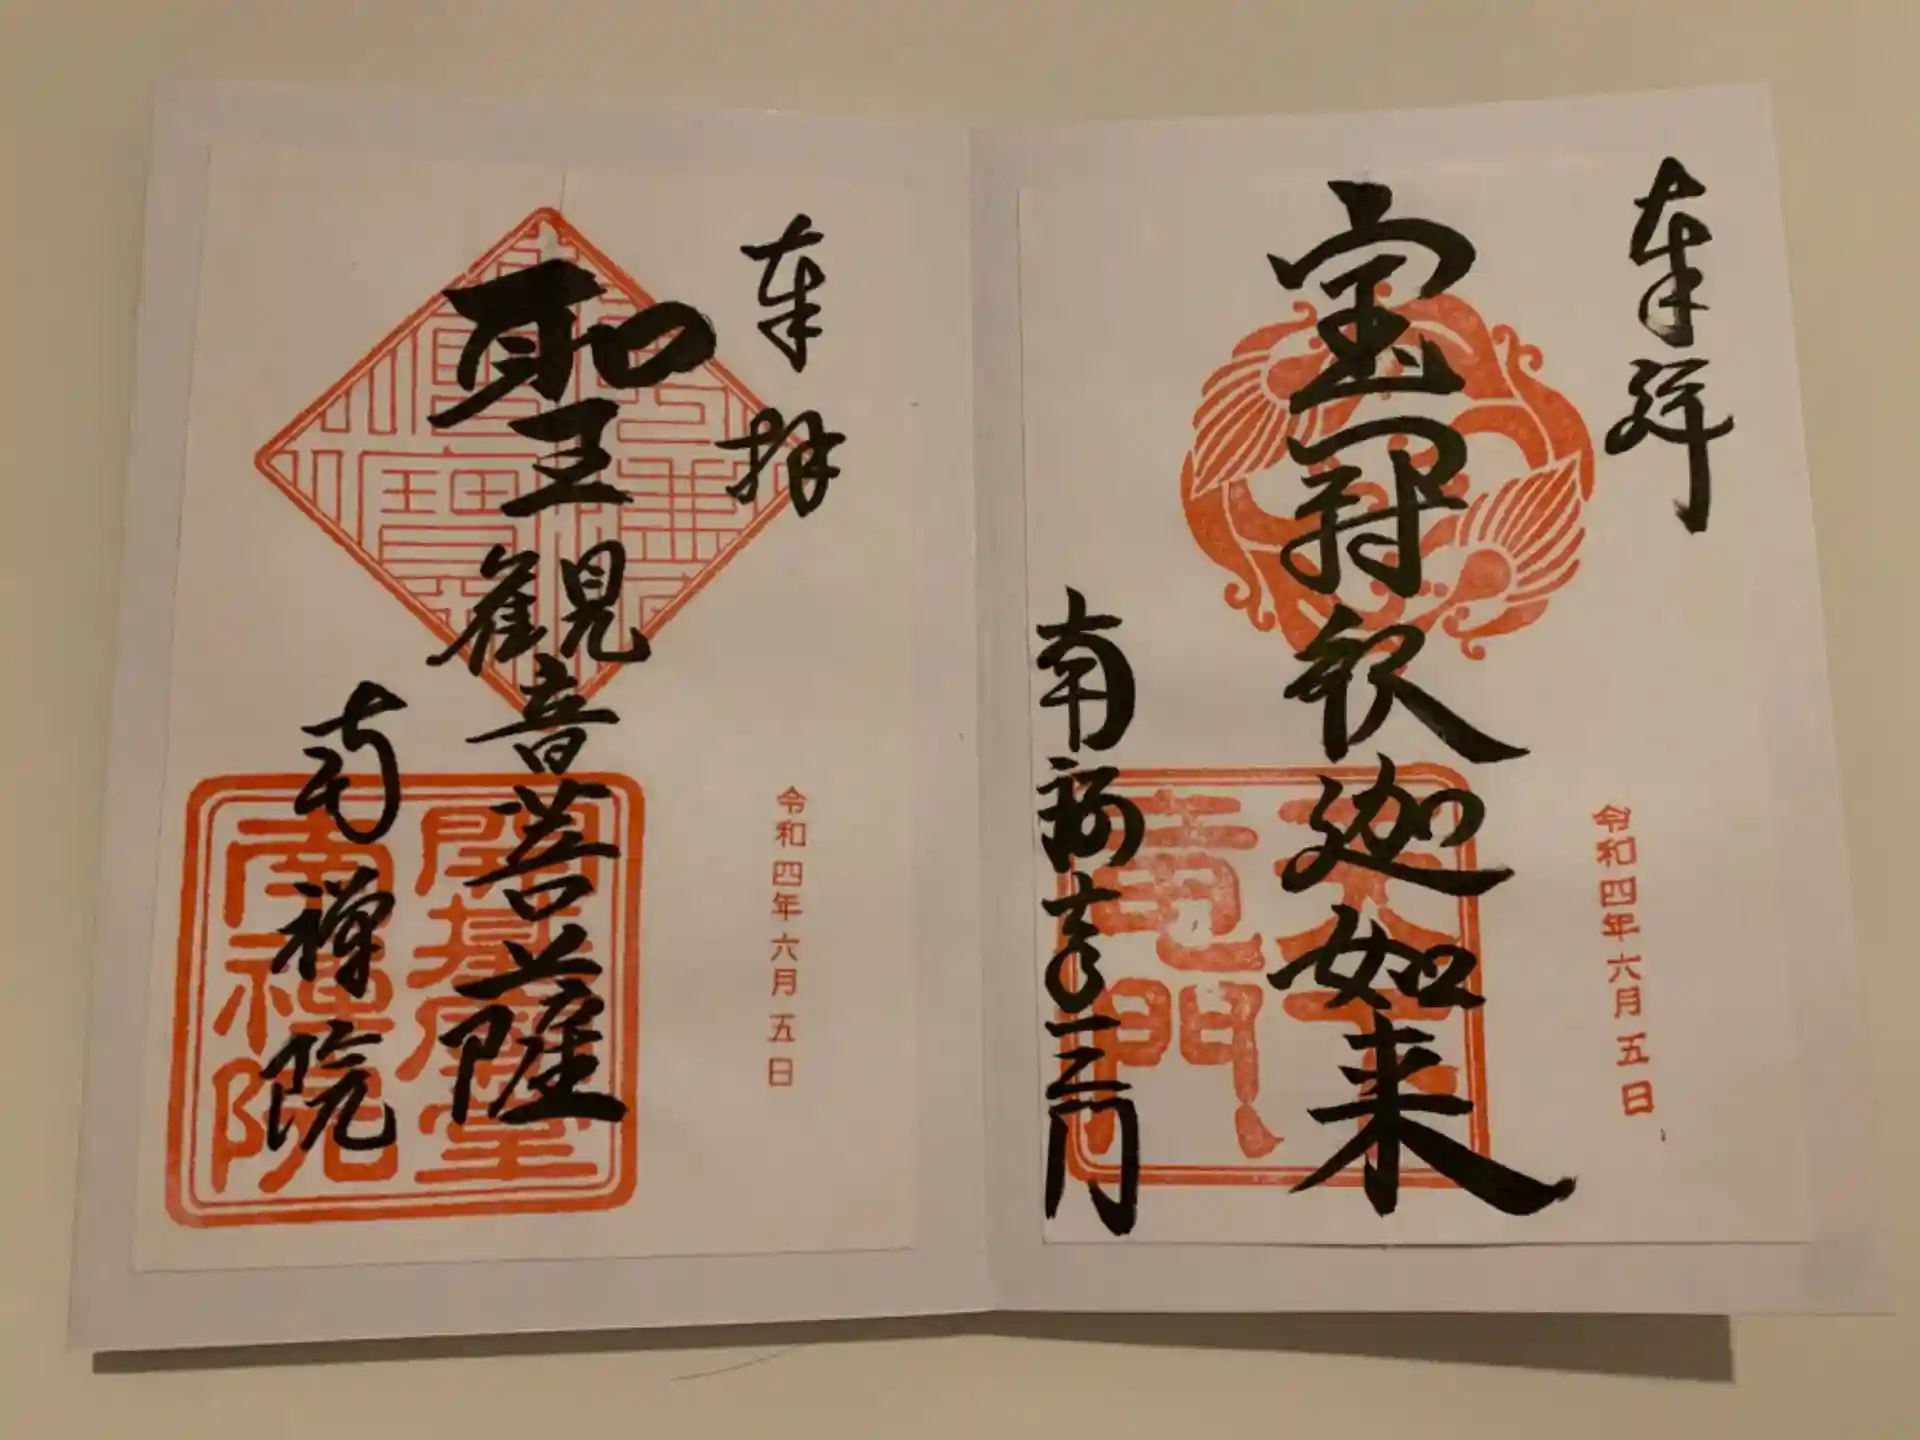 奉拝
令和四年六月五日
宝冠釈迦如来
天下
竜門
南禅寺三門
奉拝
令和四年六月五日
聖観音菩薩
南禅院
南禅院